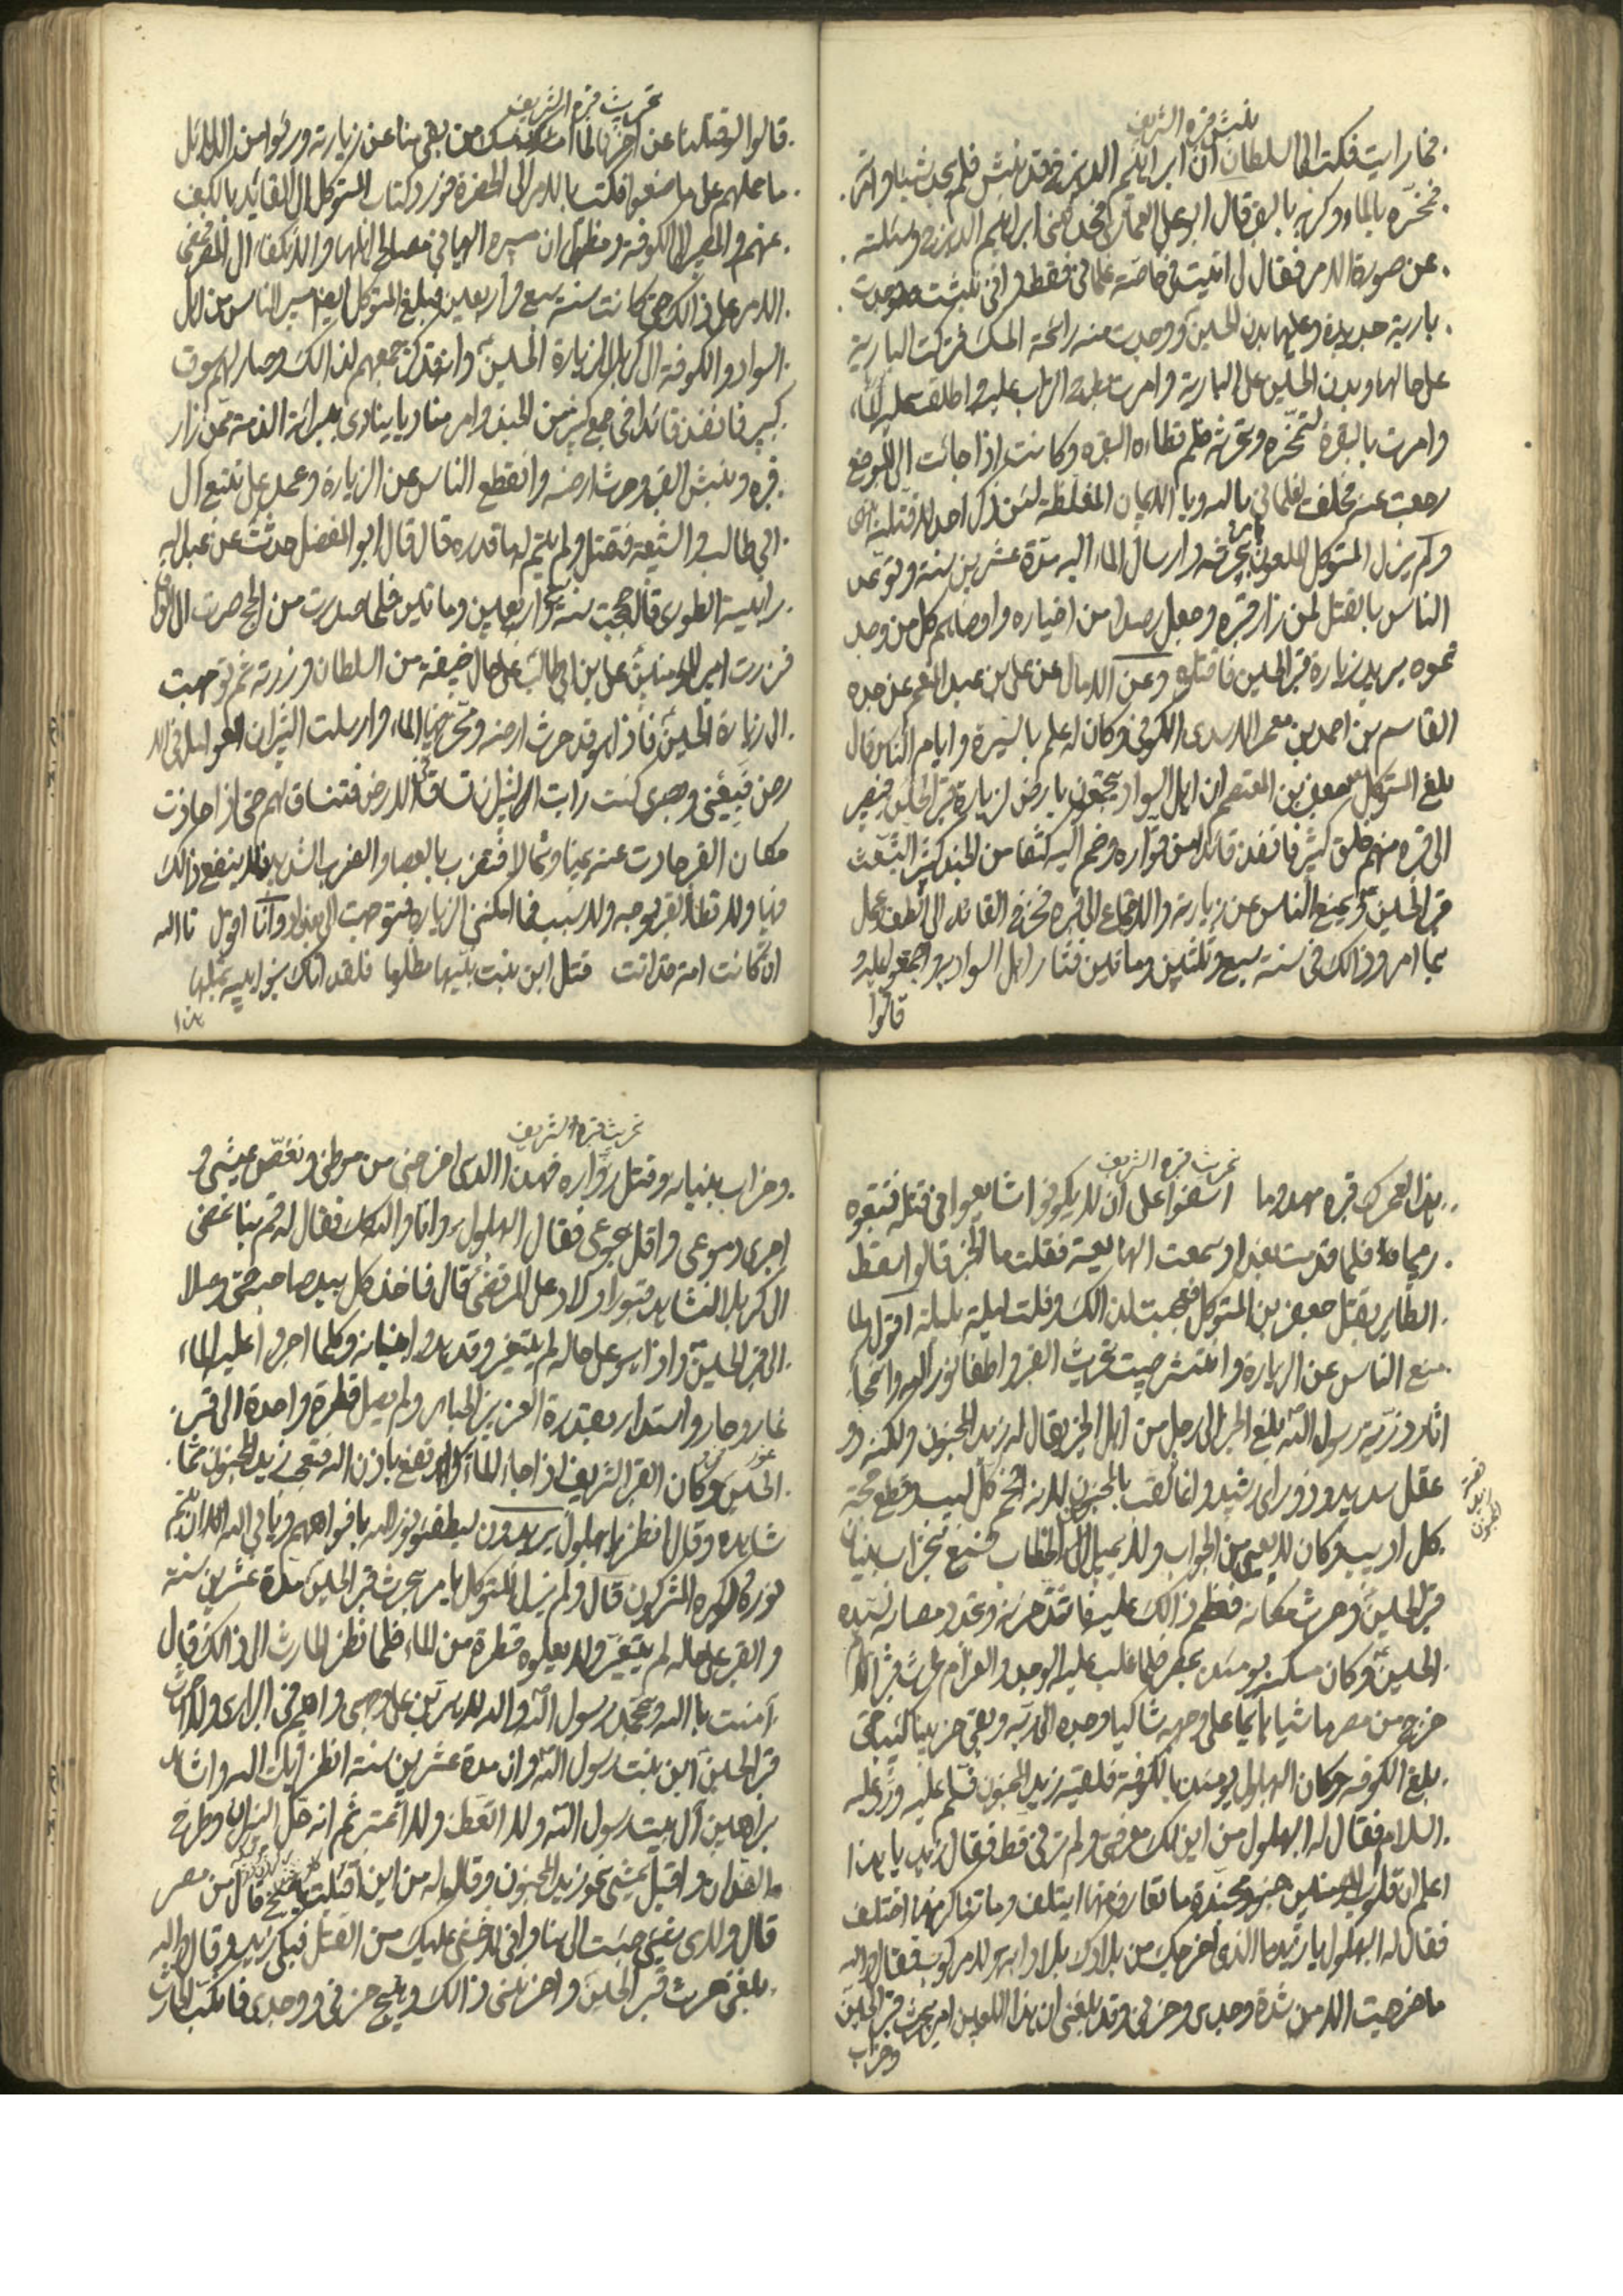 نبش قبره الشريف
فما رايت فكتب الى السلطان ان ابراهيم الديزج قد نبش فلم يجد شيئا وامر
فمخره بالماء وكربه بالبقر قال ابو علي العماري فحدثني ابراهيم الديزج وسئلته
عن صورة الامر فقال لى اتيت في خاصة غلماني فقط واني نبشت فوجدت
بارية جديدة وعليها بدن الحسين ووجدت منه رائحة المسك فتركت البارية
على حالها وبدن الحسين على البارية وامرت بطرح التراب عليه واطلقت عليه الماء
وامرت بالبقرة لتمخره وتحرثه فلم تطاءه البقره وكانت اذا جائت الى الموضع
رجعت عنه فحلفت لغلماني بالله وبالايمان المغلظة لئن ذكر احد هذا لاقتلنه
ولم يزل المتوكل الملعون يامر بحرثه وارسال الماء اليه مدة عشرين سنة وتوعد
الناس بالقتل لمن زار قبره وجعل رصدا من اخباره واوصاهم كل من وجد
تموه يريد زيارة قبر الحسين فاقتلوه وعن الامالى عن علي بن عبد المنعم عن جده
القاسم بن احمد بن معمر الاسدى الكوفي وكان له علم بالسيرة وايام الناس قال
بلغ المتوكل جعفر بن المعتصم ان اهل السواد يجتمعون بارض لزيارة قبر الحسين فيصير
الى قبره منهم خلق كثير فانفذ قائدا من قواده وضم اليه كتفا من الجند كثير ليشعث
قبر الحسين ويمنع الناس عن زيارته والاجتماع الى قبره فخرج القائد الى الطف وعمل
بما امر وذالك في سنة سبع وثلثين وماتين فثار اهل السواد به واجتمعوا عليه و
قالوا
تحريث قبره الشريف
قالوا لو قتلنا عن اخرنا لما امسك من بقي منا عن زيارته وراوا من الدلائل
ما حملهم على ما صنعوا فكتب بالامر الى الحضرة فورد كتاب المتوكل الى القائد بالكف
عنهم والمسير الى الكوفة ومظهرا ان مسيره اليها في مصالح اهلها والانكفاء الى المصر فمضى
الامر على ذالك حتى كانت سنة سبع واربعين فبلغ المتوكل ايضا مسير الناس من اهل
السواد والكوفة الى كربلا لزيارة الحسين وانه قد كثر جمعهم لذالك وصار لهم سوق
كبير فانفذ قائدا في جمع كثير من الجند وامر مناديا ينادى ببرائة الذمة ممن زار
قبره ونبش القبر وحرث ارضه وانقطع الناس عن الزيارة وعمد على تتبع آل
ابي طالب والشيعة فقتل ولم يتم له ما قدره قال قال ابو المفضل حدثت عن عبد الله
رابية الطورى قال حججت سنة سبع واربعين وماتين فلما صدرت من الحج صرت الى العراق
فزرت امير المؤمنين علي بن ابي طالب على حال خيفة من السلطان وزرته ثم توجهت
الى زيارة الحسين فاذا هو قد حرث ارضه ومخر فيها الماء وارسلت الثيران العوامل في الا
رض فبعيني وبصرى كنت رايت الثيران تساق في الارض فتنساق لهم حتى اذا حاذت
مكان القبر حادت عنه يمينا وشمالا فتضرب بالعصا والضرب الشديد فلا ينفع ذالك
فيها ولا تطا القبر بوجه ولا سبب فما امكنني الزياره فتوجهت الى بغداد وانا اقول تا الله
ان كانت امية قد اتت قتل ابن بنت نبيها مظلوما فلقد اتاك بنو ابيه بمثلها
هذا
تحريث قبره الشريف
هذا لعمرك قبره مهدوما اسفوا على ان لا يكونوا شايعوا في قتله فتتبعوه
رميما فلما قدمت بغداد سمعت الهايعة فقلت ما الخبر قالوا سقط
الطاير بقتل جعفر بن المتوكل فعجبت لذالك وقلت ليلة بليلة اقول لما
منع الناس عن الزيارة وانتشر صيت تحريث القبر واطفا نور الله وامحاء
اثار ذرية رسول الله بلغ الخبر الى رجل من اهل الخير يقال له زيد المجنون ولكنه ذو
عقل سديد وذو راى رشيد وانما لقب بالمجنون لانه افحم كل لبيب وقطع حجة
كل اديب وكان لا يعيى من الجواب ولا يميل الى الخطاب فسمع بخراب بنيان
قبر الحسين وحرث مكانه فعظم ذالك عليه فاشتد حزنه وتجدد مصابه بسيده
الحسين وكان مسكنه يومئذ بمصر فلما غلب عليه الوجد والغرام لحرث قبر الامام
خرج من مصر ماشيا هائما على وجهه شاكيا وجده الى ربه وبقي حزينا كئيبا حتى
بلغ الكوفه وكان البهلول يومئذ بالكوفة فلقيه زيد المجنون فسلم عليه ورد عليه
السلام فقال له البهلول من اين لك معرفتي ولم ترني قط فقال زيد يا هذا
اعلم ان قلوب المؤمنين جنود مجندة ما تعارف منها ائتلف وما تناكر منها اختلف
فقال له البهلول يا زيد ما الذى اخرجك من بلادك بلا دابة ولا مركوب فقال والله
ما خرجت الا من شدة وجدى وحزنى وقد بلغني ان هذا اللعين امر بحرث قبر الحسين
وخراب
تحريث قبره الشريف
وخراب بنيانه وقتل زواره فهذا الذى اخرجنى من موطنى ونغص عيشى و
اجرى دموعى واقل هجوعى فقال البهلول وانا والله كك فقال له قم بنا نمضى
الى كربلا لنشاهد قبور اولاد علي المرتضى قال فاخذ كل بيد صاحبه حتى وصلا
الى قبر الحسين واذا هو على حاله لم يتغير وقد هدموا بنيانه وكلما اجروا عليه الماء
غار وحار واستدار بقدرة العزيز الجبار ولم يصل قطرة واحدة الى قبر
الحسين وكان القبر الشريف اذا جاءه الماء يرتفع باذن الله فتعجب زيد المجنون مما
شاهده وقال انظر يا بهلول يريدون ليطفئو نور الله بافواههم ويابي الله الا ان يتم
نوره ولو كره المشركون قال ولم يزل المتوكل يامر بحرث قبر الحسين مدة عشرين سنة
والقبر على حاله لم يتغير ولا يعلوه قطرة من الماء فلما نظر الحارث الى ذالك قال
آمنت بالله وبمحمد رسول الله والله لاهربن على وجهى واهيم في البرارى ولا احرث
قبر الحسين ابن بنت رسول الله وان مدة عشرين سنة انظر آيات الله واشاهد
براهين آل بيت رسول الله ولا اتعظ ولا اعتبر ثم انه حل النيران وطرح
الفدان واقبل يمشى نحو زيد المجنون وقال له من اين اقبلت يا شيخ قال من مصر
قال ولاى شيئ جئت الى هنا واني لاخشى عليك من القتل فبكى زيد وقال والله
بلغني حرث قبر الحسين واحزننى ذالك وهيج حزنى ووجدى فانكب الحارث